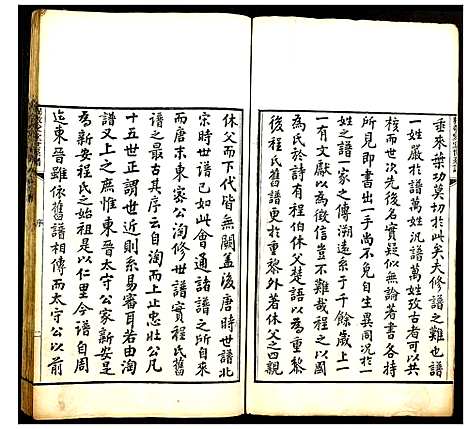 垂來葉功莫切於此矣夫修譜之難也譜
一姓嚴於譜萬姓沉譜萬姓攷古者可以共
核而世次先後名實疑似無論若書各持
所見即書出一手尚不免自生異同况於
一家之傳溯遠系于千餘歲上一
一有文獻以為徵信豈不難哉程之
為氏於詩有程伯休父楚語以為重黎
後程氏舊譜更於重黎外若休父之四親
休父而下代皆無闕蓋後唐時世譜北
宗時世譜已如此會通諸譜之所自來
而唐東密公淘修世譜實程氏舊
譜之最古其序云自淘而上止忠壯公凡
十五世正謂世近則系易審耳若由淘
譜又上之庶惟東晋太守公家新安是
為新安程氏之始祖是以仁里今譜自周
迄東晉雖依舊譜相傳而太守公以前
序